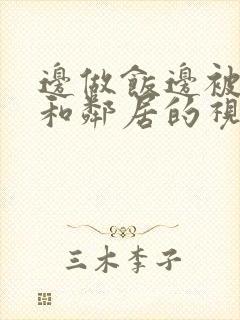 邊做飯邊被
和鄰居的視
三木李子